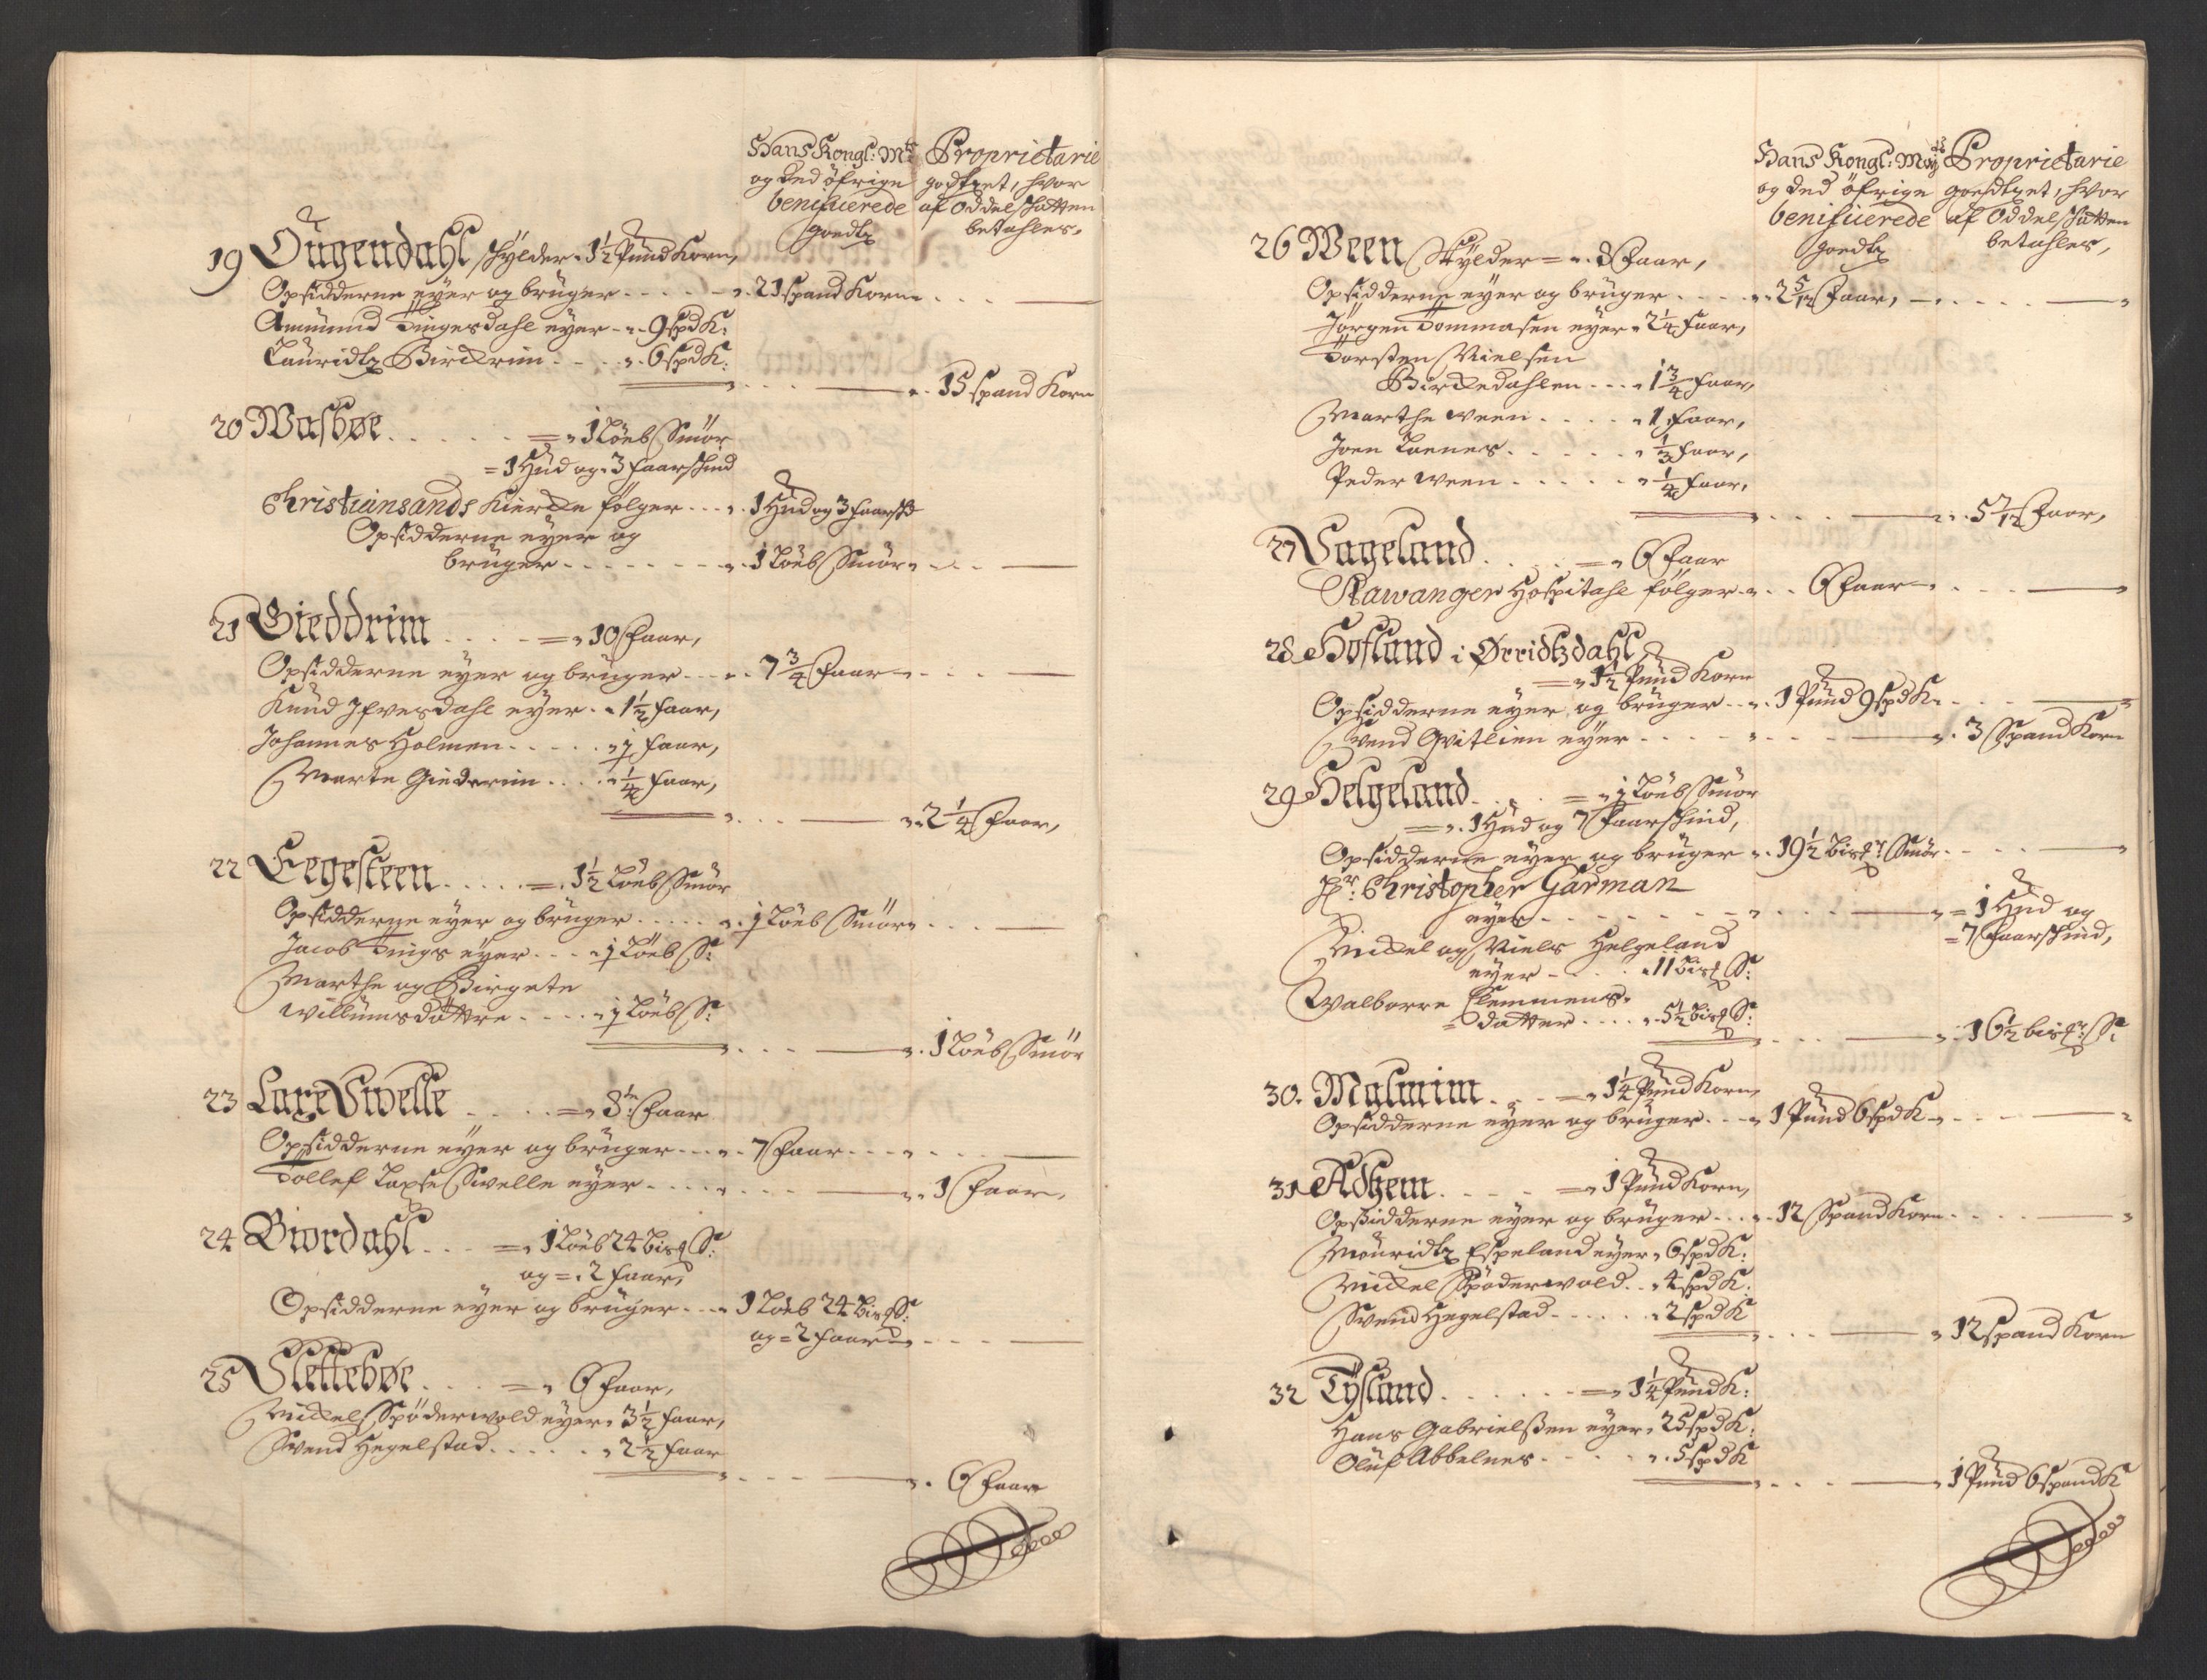 Hans Kongl: Mts Proprietarie
og ded öfrige godtzet, hvor
benificerede af Oddelskatten
goedtz betahles.
19 Öugendahl skylder 1½ Pund Korn,
Opsidderne eyer og brüger - - - - 21 spand Korn - - -
Amuund Tingesdahl eyer - 9 spd K:
Lauridtz Birckrim - - - 6 spd K:
- - - 15 spand Korn
20 Wasbøe - - - = 1 Löeb Smör
= 1 Hud og 3 faarskind
Christiansands Kiercke fölger - - - 1 Hud og 3 faarskd
Opsidderne eyer og
brüger - - - - 1 Löeb Smör - - -
21 Gieddrim - - - = 10 Faar,
Opsidderne eyer og brüger - - - 7¾ Faar - - -
Knud Ifvesdahl eyer - 1½ faar,
Johannes Holmen - - - ½ faar,
Marte Giedrim - - - ¼ faar,
- - - 2¼ Faar,
22 Eegesteen - - - = 1½ Löeb Smör
Opsidderne eyer og brüger - - - ½ Löeb Smör - - -
Jacob Tengs eyer - - - ½ Löeb S:
Marthe og Birgete
Willumsdøttre - - - ½ Löeb S:
- - - 1 Löeb Smör
23 LaxeSwelle - - - = 8te Faar
Opsidderne eyer og brüger - - - 7 Faar - - -
Tollef Laxse Swelle eyer - - - 1 Faar,
24 Biordahl - - - = 1 Löeb 24 bisg S:
og = 2 faar,
Opsidderne eyer og brüger - - - 1 Löeb 24 bisg S:
og = 2 faar - - -
25 Slettebøe - - - = 6 Faar,
Mickel Spöderwold eyer 3½ faar,
Svend Hegelstad - - - 2½ faar
- - - 6 Faar
Hans Kongl: Mayts Proprietarie
og ded öfrige goedtzet, hvor
benificerede af Oddelskatten
goedtz betahles,
26 Ween Skylder = 8 Faar,
Opsidderne eyer og brüger - - - 2 5/12 Faar, - - -
Jörgen Tommasen eyer 2¼ faar,
Torsten Nielsen
Birckedahlen - - - 1¾ faar,
Marthe Ween - - - 1 faar,
Joen Toenes - - - ⅓ faar,
Peder Ween - - - ¼ faar,
- - - 5 7/12 Faar,
27 Sageland - - - = 6 Faar
Stawanger Hospitahl fölger - - 6 Faar - - -
28 Hofland i Ørridtzdahl
= 1½ Pund Korn
Opsidderne eyer og brüger - - 1 Pund 9 spd K - - -
Svend Qvitlien eyer - - - 3 Spand Korn
29 Helgeland - - - = 1 Löeb Smör
= 1 Hud og 7 Faarskind,
Opsidderne eyer og brüger - 19½ bisgr Smör - - -
Hr: Christopher Garman
eyer - - - = 1 Hud og
= 7 Faarskind,
Mickel og Niels Helgeland
eyer - - - 11 bisg S:
Walborre Clemmens-
datter - - - 5½ bisg S:
- - - 16½ bisgr: S:
30. Malmim - - - = 1¼ Pund Korn,
Opsidderne eyer og brüger - - - 1 Pund 6 spd K - - -
31 Adhem - - - = 1 Pund Korn,
Opsidderne eyer og brüger - - - 12 Spand Korn - - -
Mouridtz Espeland eyer 6 spd K:
Mickel Spöderwold - - 4 spd K:
Svend Hegelstad - - - 2 spd K
- - - 12 spand Korn
32 Tysland - - - = 1¼ Pund K:
Hans Gabrielßen eyer 25 spd K:
Oluf Abbelnes - - - 5 spd K
- - - 1 Pund 6 spand K